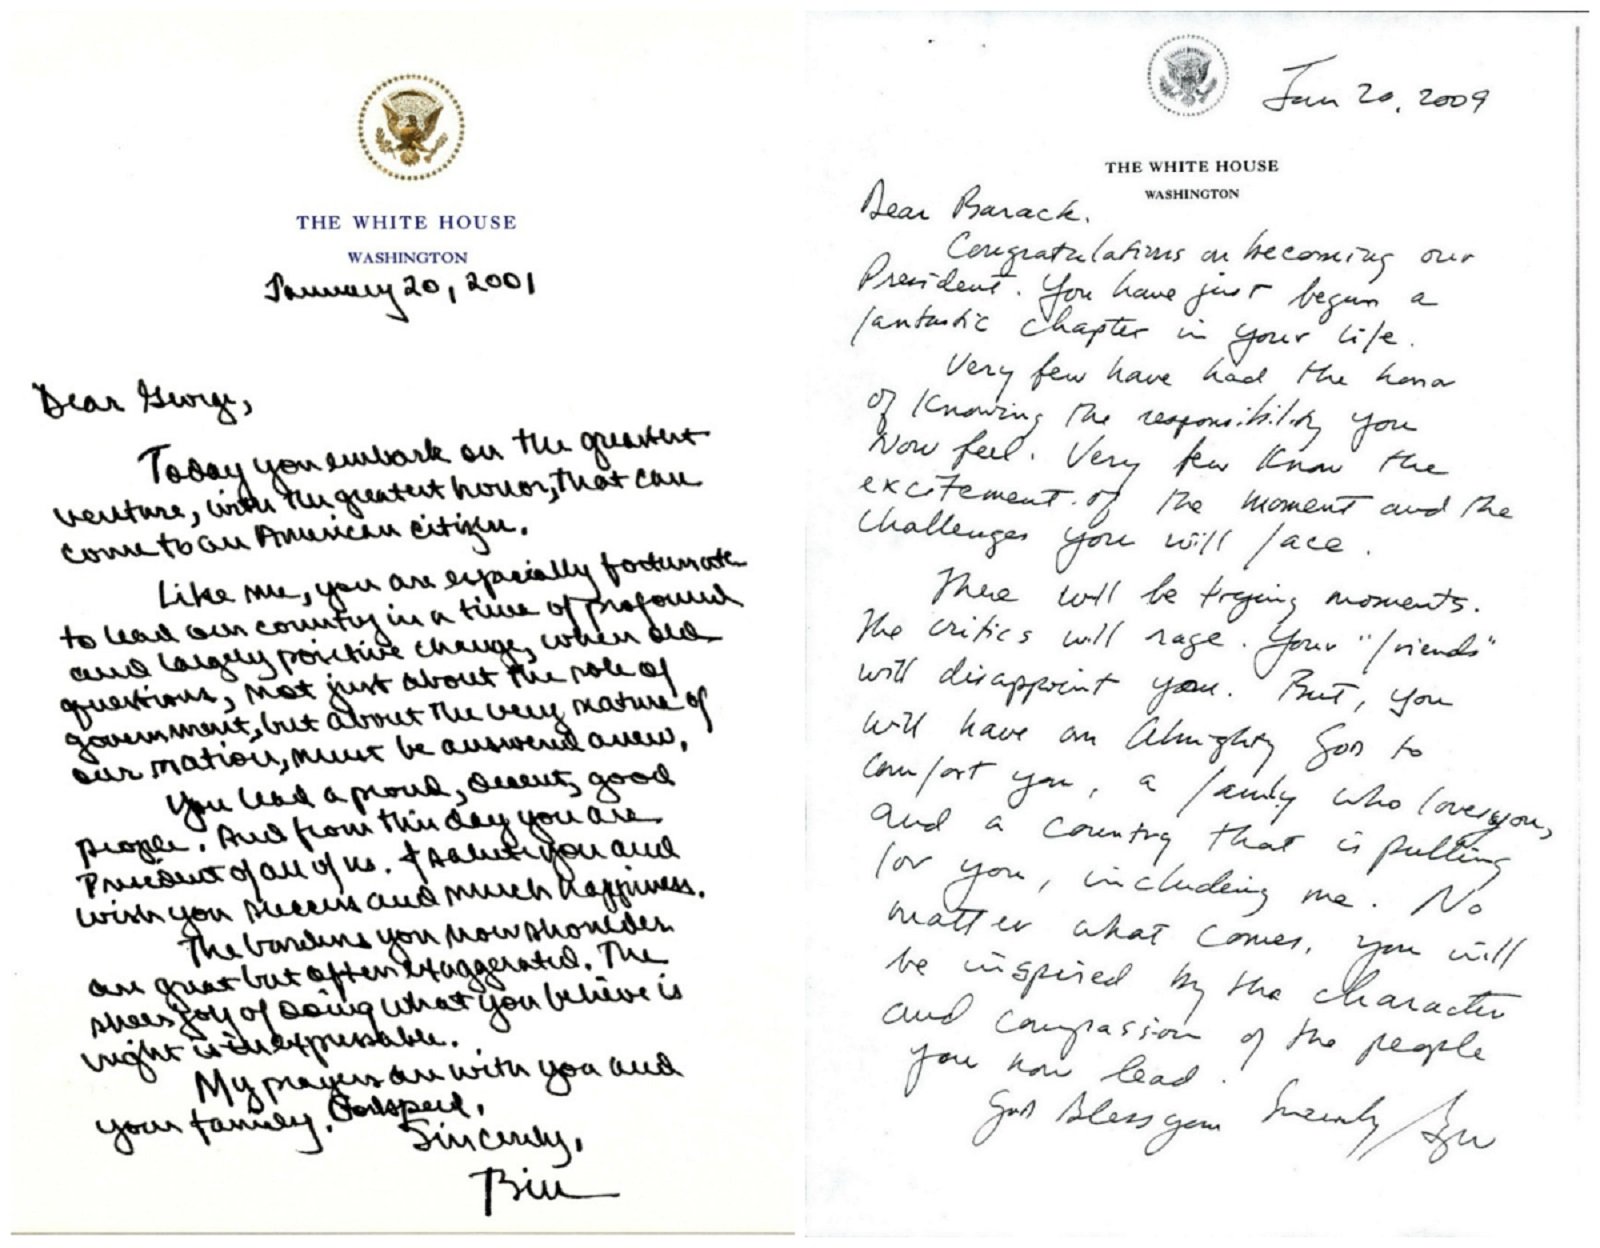 THE WHITE HOUSE
WASHINGTON
January 20, 2001
Dear George,
Today you embark on the greatest
venture, with the greatest honor, that can
come to an American citizen.
Like me, you are especially fortunate
to lead our country in a time of profound
and largely positive change, when old
questions, not just about the role of
government, but about the very nature of
our nation, must be answered anew.
You lead a proud, decent, good
people. And from this day you are
President of all of us. I salute you and
wish you success and much happiness.
The burdens you now shoulder
are great but often exaggerated. The
sheer joy of doing what you believe is
right is inexpressible.
My prayers are with you and
your family. Godspeed.
Sincerely,
Bill
Jan 20, 2009
THE WHITE HOUSE
WASHINGTON
Dear Barack,
Congratulations on becoming our
President. You have just begun a
fantastic chapter in your life.
Very few have had the honor
of knowing the responsibility you
now feel. Very few know the
excitement of the moment and the
challenges you will face.
There will be trying moments.
The critics will rage. Your "friends"
will disappoint you. But, you
will have an Almighty God to
comfort you, a family who loves you,
and a country that is pulling
for you, including me. No
matter what comes, you will
be inspired by the character
and compassion of the people
you now lead.
God bless you. Sincerely, GW